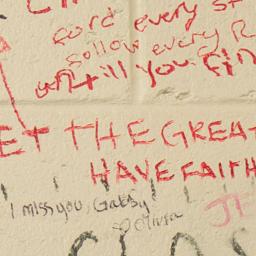 ford every st
follow every R
untill you fin
ET THE GREAT
HAVE FAITH
I miss you, Gabby
Olivia
JF